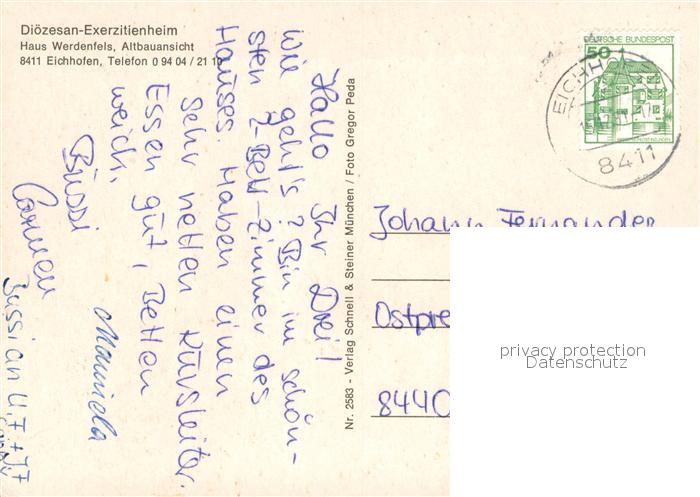 Diözesan-Exerzitienheim
Haus Werdenfels, Altbauansicht
8411 Eichhofen, Telefon 0 94 04 / 21 10
Hallo Ihr Drei!
Wie geht's? Bin im schön-
sten 2-Bett-Zimmer des
Hauses. Haben einen
sehr netten Kursleiter.
Essen gut, Betten
weich.
Bussi
Carmen
Manuela
Bussi an U, F + J
Nr. 2583 - Verlag Schnell & Steiner München / Foto Gregor Peda
DEUTSCHE BUNDESPOST
50
EICHHO
8411
Johann Fernander
Ostpre
8440
privacy protection
Datenschutz